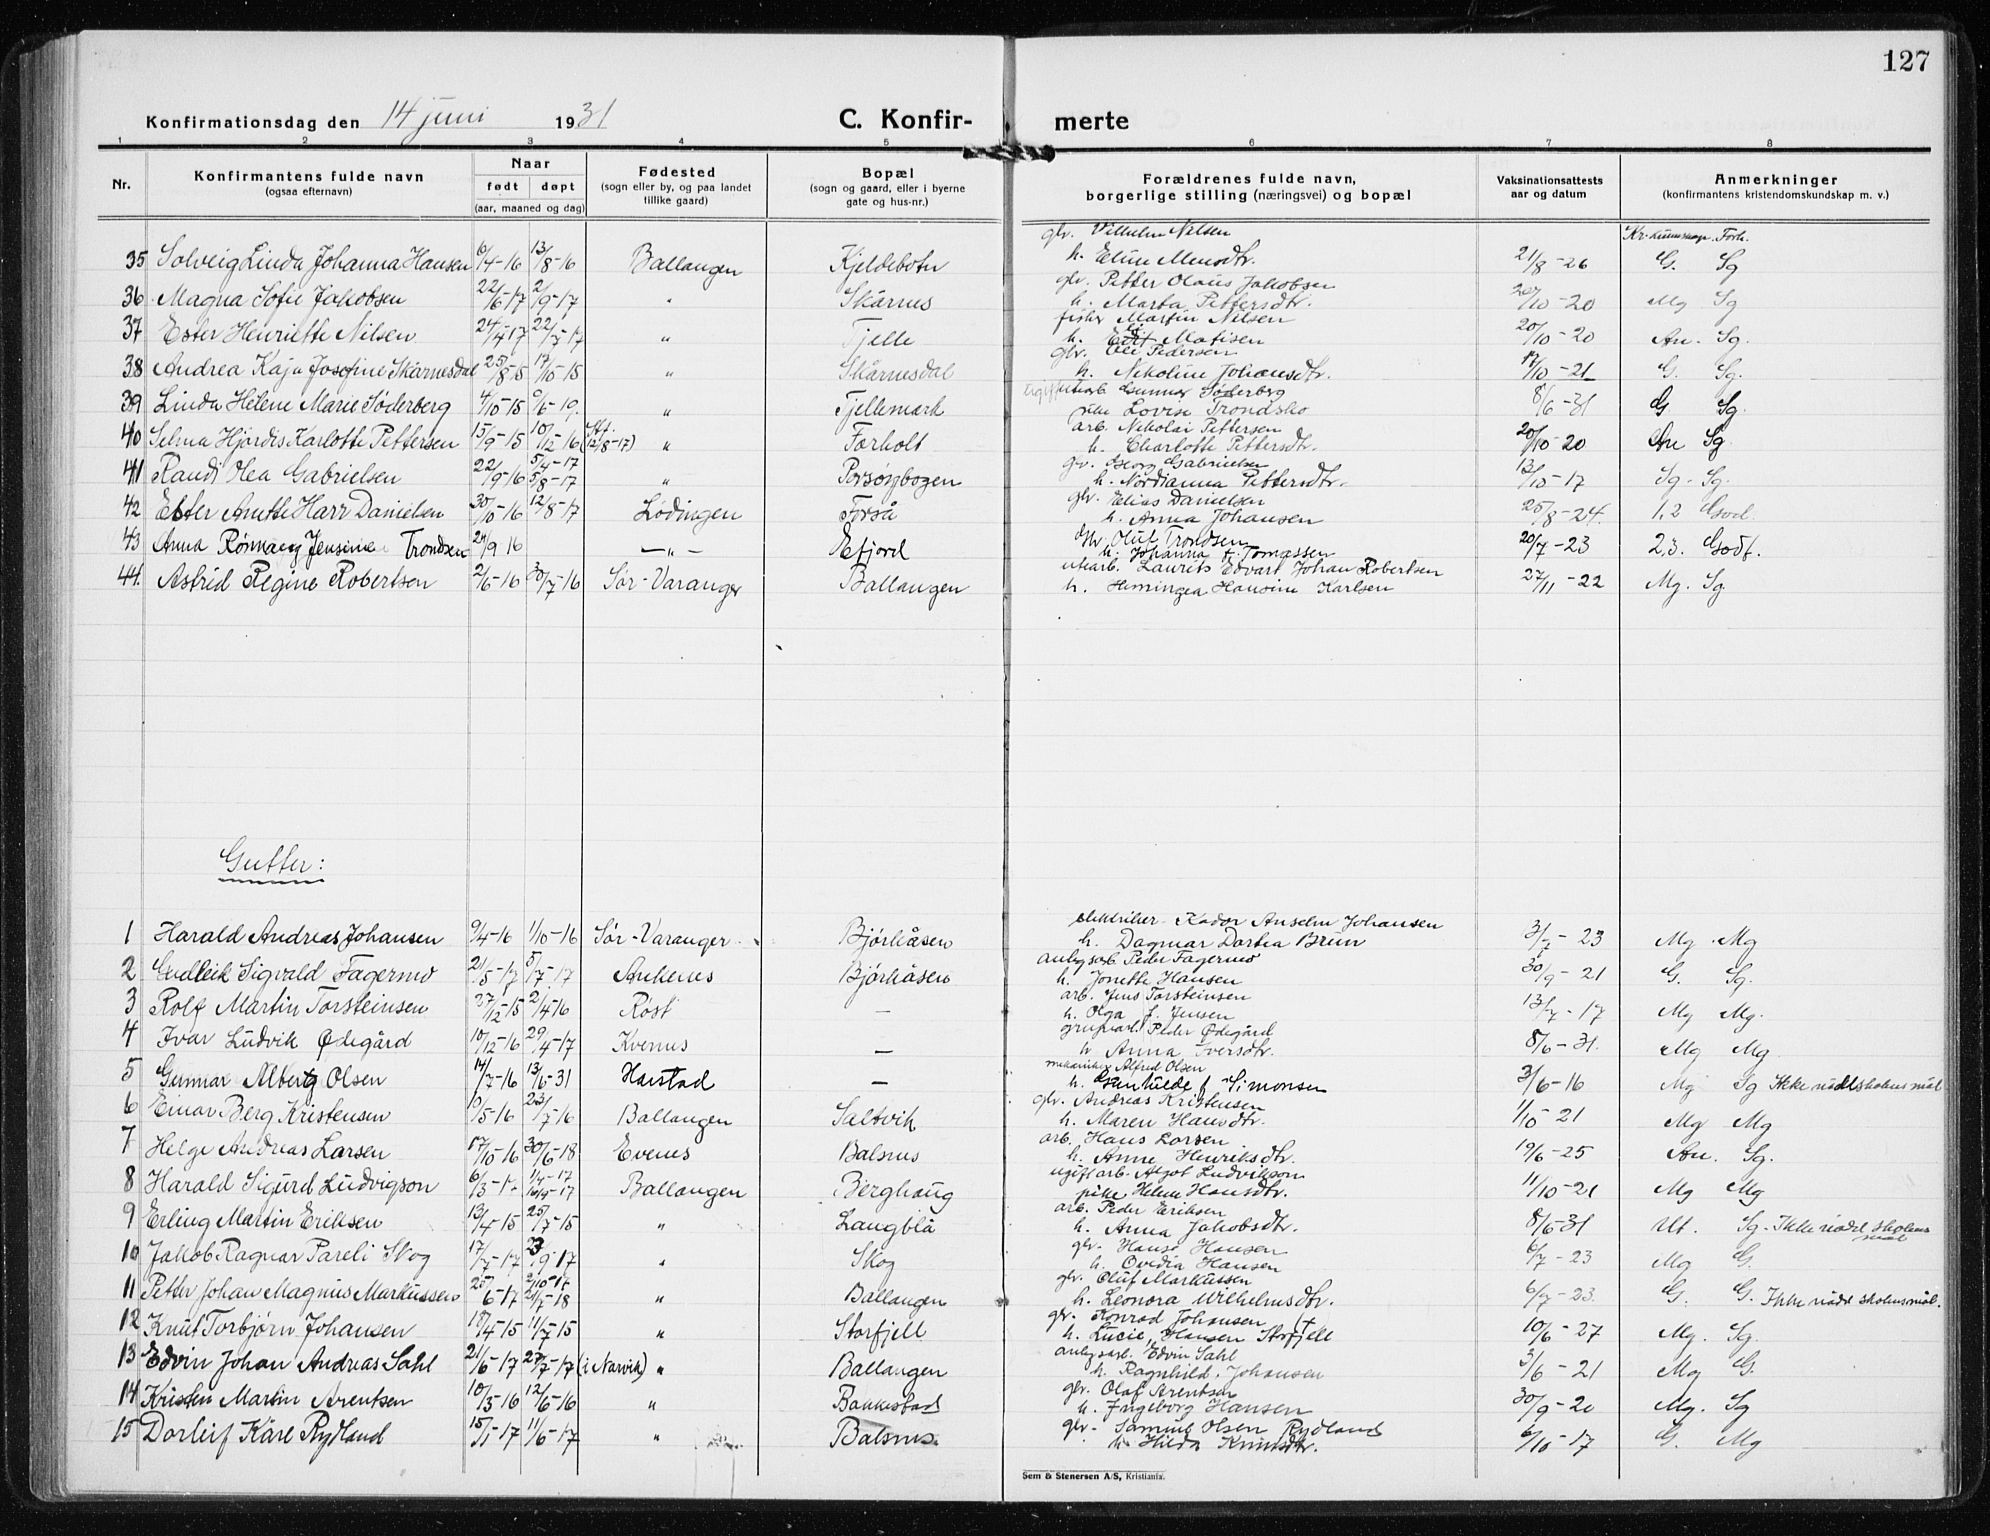 127
Konfirmationsdag den 14 juni 1931 C. Konfirmerte
1 2 3 4 5 6 7 8
Nr. Konfirmantens fulde navn (ogsaa efternavn) Naar født døpt (aar, maaned og dag) Fødested (sogn eller by, og paa landet tillike gaard) Bopæl (sogn og gaard, eller i byerne gate og hus-nr.) Forældrenes fulde navn, borgerlige stilling (næringsvei) og bopæl Vaksinationsattests aar og datum Anmerkninger (konfirmantens kristendomskundskap m. v.)
gbr. Vilhelm Nilsen Kr. kunnskap. Forh.
35 Solveig Linda Johanna Hansen 6/4-16 13/8-16 Ballangen Kjeldebotn h. Eline Monsdtr. 21/8-26 G. Sg
gbr. Petter Olaus Jakobsen
36 Magna Sofie Jakobsen 22/6-17 2/9-17 " Skårnes h. Marta Pettersdtr. /10-20 Mg Sg
fisker Martin Nilsen
37 Ester Henriette Nilsen 24/4 17 22/7-17 " Tjelle h. Matisen 20/10-20 An. Sg.
gbr. Ole Pedersen
38 Andrea Kaja Josefine Skårnesdal 25/8-15 17/10-15 " Skårnesdal h. Nikoline Johansdtr. 17/10-21 G. Sg.
Gunnar Søderberg
39 Linda Helene Marie Søderberg 4/10-15 /6-19. " Tjellemark Lovise Trondsko 8/6-31 G Sg.
arb. Nikolai Pettersen
40 Selma Hjørdis Karlotte Pettersen 15/9-15 10/12-16 (Stf. 12/8-17) " Forholt h. Charlotte Pettersdtr. 20/10-20 An Sg.
gbr. Georg Gabrielsen
41 Randi Olea Gabrielsen 22/9-16 5/4-17 5/8-17 " h. Nordianna Pettersdtr. 13/10-17 Sg. Sg.
gbr. Elias Danielsen
42 Ester Anette Harr Danielsen 30/10-16 12/8-17 Lødingen Forså h. Anna Johansen 25/8-24. 1,2 God.
gbr. Oluf Trondsen
43 Anna Rønnaug Jensine Trondsen 24/9 16 — " — Efjord h. Johanna F. Tomassen 20/7-23 2,3. Godt.
utearb. Laurits Edvart Johan Robertsen
44. Astrid Regine Robertsen 2/6-16 30/7-16 Sør-Varanger Ballangen h. Hemingea Hansine Karlsen 27/11-22 Mg. Sg.
Gutter:
elektriker. Kador Anselm Johansen
1 Harald Andreas Johansen 9/4-16 1/10-16 Sør-Varanger Bjørkåsen h. Dagmar Dortea Brun 3/7-23 Mg. Mg
anlegsarb. Peder Fagermo
2 Gudleik Sigvald Fagermo 21/5-17 5/7-17 Ankenes Bjørkåsen h. Jonette Hansen 30/9-21 G. Sg.
arb. Jens Torsteinsen
3 Rolf Martin Torsteinsen 27/12-15 2/4 16 Røst — h. Olga J. Jensen 13/7-17 Mg Mg.
gruvearb. Peder Ødegård
4 Ivar Ludvik Ødegård 10/12-16 29/4-17 Kvenes — h. Anna Iversdtr. 8/6-31. Mg Mg
mekaniker Alfred Olsen
5 Gunnar Albert Olsen 14/7-16 13/6-31 Harstad — h. f. Simonsen 3/6-16 Mg Sg Ikke nådd skolens mål
gbr. Andreas Kristensen
6 Einar Berg Kristensen 10/5-16 23/7-16 Ballangen Saltvik h. Maren Hansdtr. 1/10-21 Mg Mg
arb. Hans Larsen
7 Helge Andreas Larsen 17/10-16 30/6-18 Evenes Balsnes h. Anne Henriksdtr. 19/6-25 An. Sg.
ugift arb. Algot Ludvikson
8 Harald Sigurd Ludvigson 6/3-17 Ballangen Berghaug pike Helene Hansdtr. 11/10-21 Mg Mg
arb. Peder Eriksen
9 Erling Martin Eriksen 13/4 15 25/7-15 " Langblå h. Anna Jakobsdtr. 8/6-31 Ut. Sg. Ikke nådd skolens mål
gbr. Hans Hansen
10 Jakob Ragnar Pareli Skog 17/7-17 23/9 17 " Skog h. Ovidia Hansen 6/7-23 Mg G.
gbr. Oluf Markussen
11 Petter Johan Magnus Markussen 25/6-17 21/7-18 " Ballangen h. Leonora Wilhelmsdtr. 6/7-23. G. G. Ikke nådd skolens mål.
gbr. Konrad Johansen
12 Knut Torbjørn Johansen 17/4-15 11/7-15 " Storfjell h. Lucie Hansen Storfjell 10/6-27 Mg. Sg.
anlegsarb. Edvin Sahl
13 Edvin Johan Andreas Sahl 21/6-17 27/7-17 (i Narvik) " Ballangen h. Ragnhild Johansen 3/6-21 Mg G.
gbr. Olaf Arentsen
14 Kristen Martin Arentsen 10/3-16 12/6-16 " Bakkestad h. Ingeborg Hansen 30/9-20 Mg. Sg
gbr. Samuel Olsen Rydland
15 Dorleif Kåre Rydland 15/1-17 11/6-17 " Balsnes h. Hilda Knutsdtr. 6/10-17 G. Mg
Sem & Stenersen A/S, Kristiania.